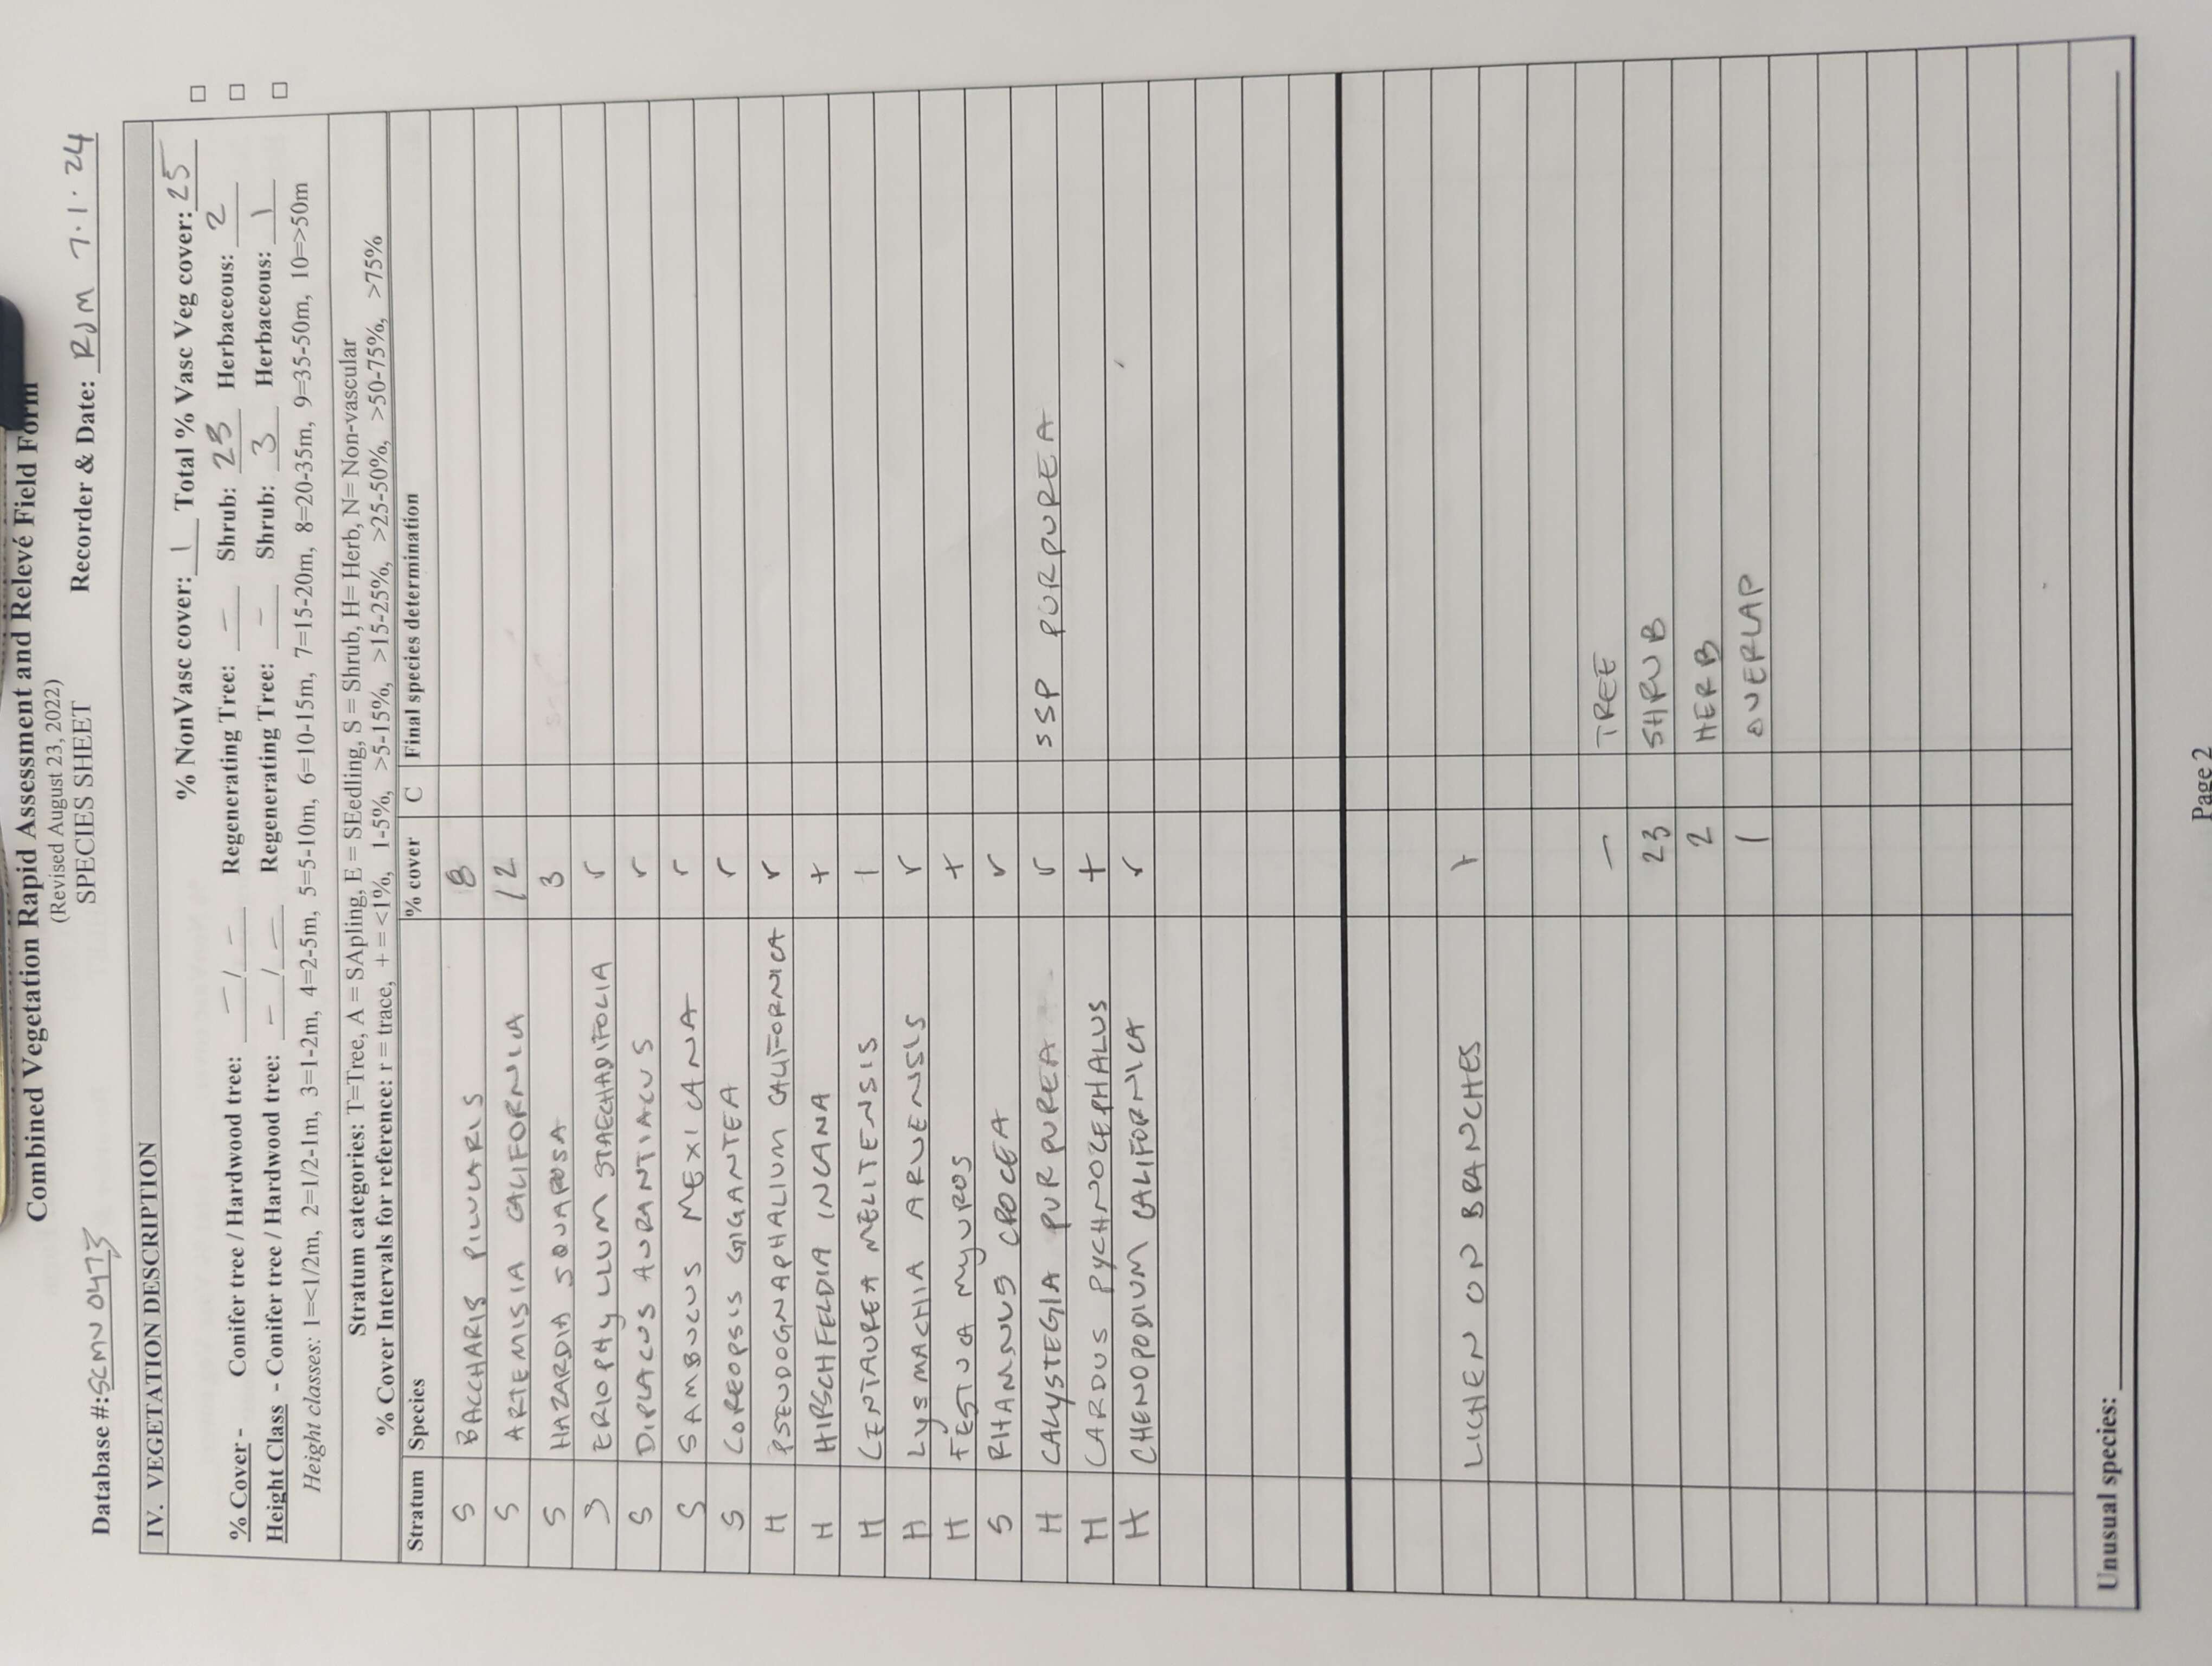 Combined Vegetation Rapid Assessment and Relevé Field Form
(Revised August 23, 2022)
SPECIES SHEET
Database #: SCMN 0473 Recorder & Date: RJM 7.1.24
IV. VEGETATION DESCRIPTION
% NonVasc cover: 1 Total % Vasc Veg cover: 25 □
% Cover - Conifer tree / Hardwood tree: - / - Regenerating Tree: - Shrub: 23 Herbaceous: 2 □
Height Class - Conifer tree / Hardwood tree: - / - Regenerating Tree: - Shrub: 3 Herbaceous: 1 □
Height classes: 1=<1/2m, 2=1/2-1m, 3=1-2m, 4=2-5m, 5=5-10m, 6=10-15m, 7=15-20m, 8=20-35m, 9=35-50m, 10=>50m
Stratum categories: T=Tree, A = SApling, E = SEedling, S = Shrub, H= Herb, N= Non-vascular
% Cover Intervals for reference: r = trace, + = <1%, 1-5%, >5-15%, >15-25%, >25-50%, >50-75%, >75%
Stratum Species % cover C Final species determination
S BACCHARIS PILULARIS 8
S ARTEMISIA CALIFORNIA 12
S HAZARDIA SQUAROSA 3
S ERIOPHYLLUM STAECHADIFOLIA r
S DIPLACUS AURANTIACUS r
S SAMBUCUS MEXICANA r
S COREOPSIS GIGANTEA r
H PSEUDOGNAPHALIUM CALIFORNICA r
H HIRSCHFELDIA INCANA +
H CENTAUREA MELITENSIS 1
H LYSMACHIA ARVENSIS r
H FESTUCA MYUROS +
S RHAMNUS CROCEA r
H CALYSTEGIA PURPUREA r SSP PURPUREA
H CARDUS PYCHNOCEPHALUS +
H CHENOPODIUM CALIFORNICA r
LICHEN ON BRANCHES +
- TREE
23 SHRUB
2 HERB
1 OVERLAP
Unusual species:
Page 2